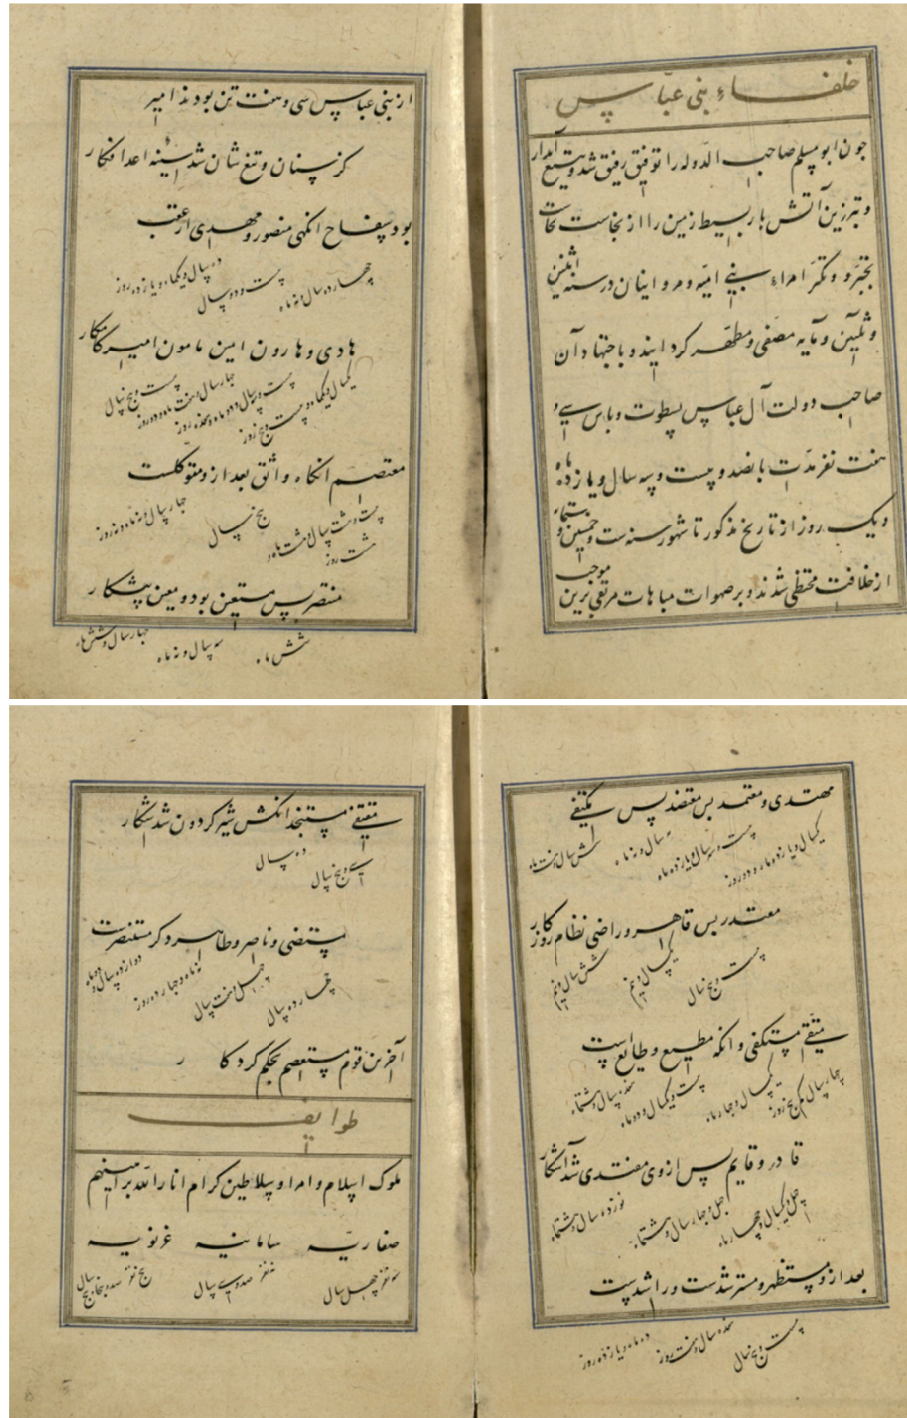 خلفاء بنی عباس
چون ابو مسلم صاحب الدوله را توفیق رفیق شد و بتیغ آبدار
و تبرزین آتش بار بسیط زمین را از نجاست
تجبر و تکبر امراء بنی امیه و مروانیان در سنه اثنین
و ثلثین و مایه مصفی و مطهر گردانیدند و باجتهاد آن
صاحب دولت آل عباس بسطوت و باس سی و
هفت نفر مدت پانصد و بیست و سه سال و یازده ماه
و یک روز از تاریخ مذکور تا شهور سنه ست و خمسین و ستمایه
از خلافت محتظی شدند و بر صهوات مباهات مرتقی برین موجب
از بنی عباس سی و هفت تن بودند امیر
کز سنان و تیغ شان شد سینه اعدا فکار
بود سفاح انگهی منصور و مهدی از عقب
چهار سال و نه ماه
بیست و دو سال
ده سال و یکماه و یازده روز
هادی و هارون امین مامون امیر کامکار
یکسال و یکماه و بیست و پنج روز
بیست و سه سال و دو ماه و هجده روز
چهار سال و هفت ماه و دو روز
بیست و پنج سال
معتصم آنگاه واثق بعد ازو متوکلست
هشت سال و هشت ماه و هشت روز
پنج سال
چهار سال و نه ماه و نه روز
منتصر پس مستعین بود و معین پشکار
شش ماه
سه سال و نه ماه
چهار سال و شش ماه
مهتدی و معتمد پس معتضد پس مکتفی
یکسال و یازده ماه و دو روز
بیست و سه سال و یازده ماه
نه سال و نه ماه
شش سال و هفت ماه
مقتدر پس قاهر و راضی نظام روزکار
بیست و پنج سال
یکسال و نیم
شش سال و نیم
متقی مستکفی و انگه مطیع و طایع است
چهار سال کم پنج روز
یکسال و چهار ماه
بیست و یکسال و دو ماه
هجده سال و هشت ماه
قادر و قایم پس از وی مقتدی شد آشکار
چهل و یکسال و چهار ماه
چهل و چهار سال و هشت ماه
نوزده سال و هشت ماه
بعد ازو مستظهر و مسترشدست و راشدست
بیست و پنج سال
هجده سال و هفت روز
ده ماه و یازده روز
مقتفی مستنجد انکش شیر گردون شد شکار
سی و پنج سال
ده سال
مستضی و ناصر و ظاهر دگر مستنصرست
چهارده سال
چهل و هفت سال
نه ماه و چهارده روز
دوازده سال و دو ماه
آخرین قوم مستعصم بحکم کردکار
طوایف
ملوک اسلام و امرا و سلاطین کرام انار الله براهینهم
صفاریه سامانیه غزنویه
سه نفر چهل سال
نه نفر صد و سی سال
پنج نفر صد و پنجاه و پنج سال